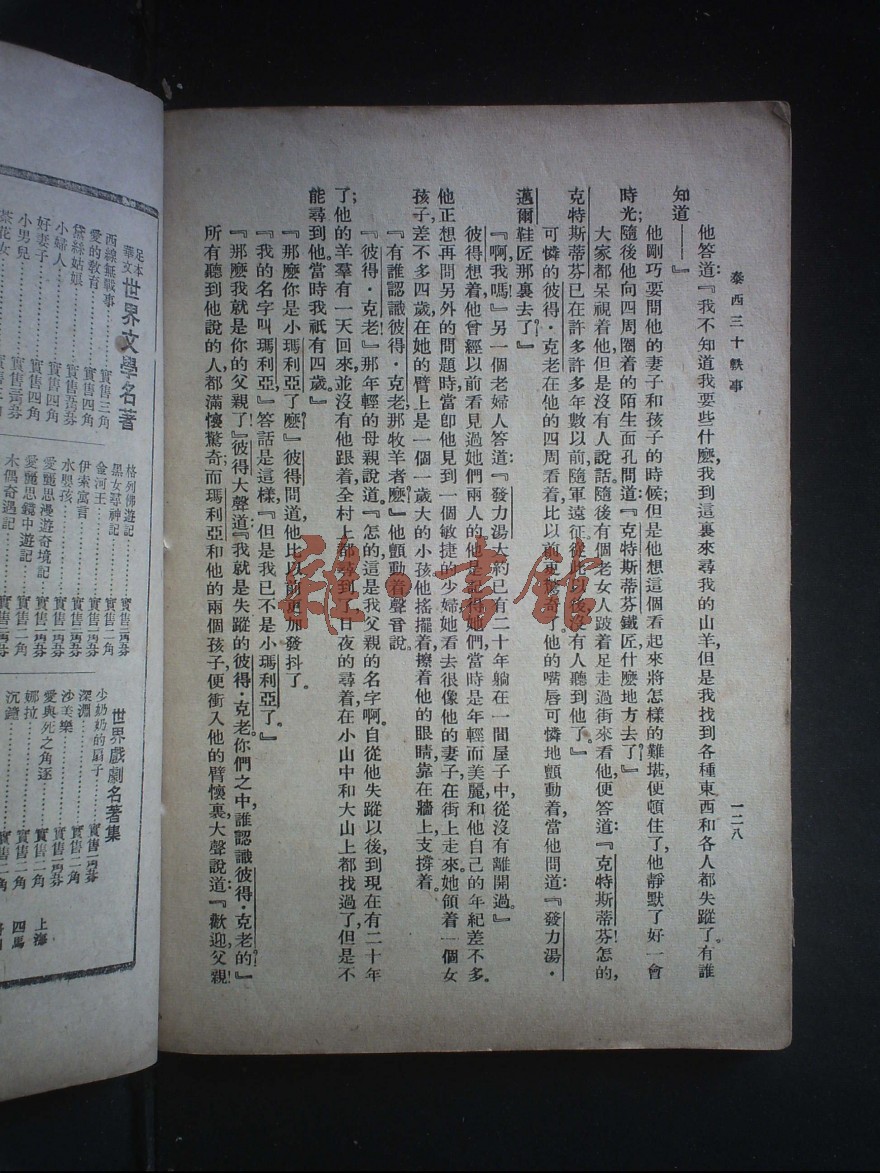 泰西三十軼事
一二八
他答道：『我不知道我要些什麼，我到這裏來尋我的山羊，但是我找到各種東西和各人都失蹤了。有誰
知道——』
他剛巧要問他的妻子和孩子的時候；但是他想這個看起來將怎樣的難堪，便頓住了，他靜默了好一會
時光；隨後他向四周圈着的陌生面孔問道：『克特斯蒂芬鐵匠什麼地方去了？』
大家都呆視着他，但是沒有人說話。隨後有個老女人跛着足走過街來看他，便答道：『克特斯蒂芬！怎的，
克特斯蒂芬已在許多許多年數以前，隨軍遠征，從此以後沒有人聽到他了。』
可憐的彼得·克老在他的四周看着，比以前更驚奇了。他的嘴唇可憐地顫動着，當他問道：『發力湯·
邁爾鞋匠那裏去了？』
『啊，我嗎？』另一個老婦人答道：『發力湯大約已有二十年躺在一間屋子中，從沒有離開過。』
彼得想着，他曾經以前看見過她們兩人的，他是記得她們，當時是年輕而美麗，和他自己的年紀差不多。
他正想再問另外的問題時，當卽他見到一個敏捷的少婦，她看去很像他的妻子，在街上走來。她領着一個女
孩子，差不多四歲，在她的臂上是一個一歲大的小孩，他搖擺着，擦着他的眼睛，靠在牆上支撐着。
『有誰認識彼得·克老那牧羊者麽？』他顫動着聲音說。
『彼得·克老！』那年輕的母親說道：『怎的，這是我父親的名字啊。自從他失蹤以後到現在有二十年
了；他的羊羣有一天回來，並沒有他跟着，全村上都尋到了，日夜的尋着，在小山中和大山上都找過了，但是不
能尋到他。當時我祇有四歲。』
『那麼你是小瑪利亞了麽？』彼得問道，他比以前更加發抖了。
『我的名字叫瑪利亞，』答話是這樣，『但是我已不是小瑪利亞了。』
『那麼我就是你的父親了！』彼得大聲道：『我就是失蹤的彼得·克老，你們之中，誰認識彼得·克老的？』
所有聽到他說的人都滿懷驚奇，而瑪利亞和他的兩個孩子，便衝入他的臂懷裏，大聲說道：『歡迎，父親！
足本
華文
世界文學名著
西線無戰事………實售三角
愛的敎育………實售四角
黛絲姑娘………實售五角
小婦人………實售四角
好妻子………實售四角
小男兒………實售
茶花女
格列佛遊記………實售
黑女尋神記………實售二角
金河王………實售二角
伊索寓言………實售二角
水嬰孩………實售
愛麗思漫遊奇境記………實售
愛麗思鏡中遊記………實售二角
木偶奇遇記
世界戲劇名著集
少奶奶的扇子………實售
深淵………實售二角
沙美樂………實售
愛與死之角逐………實售
娜拉………實售二角
沉鐘………實售二角
上海
四馬
稚·書館